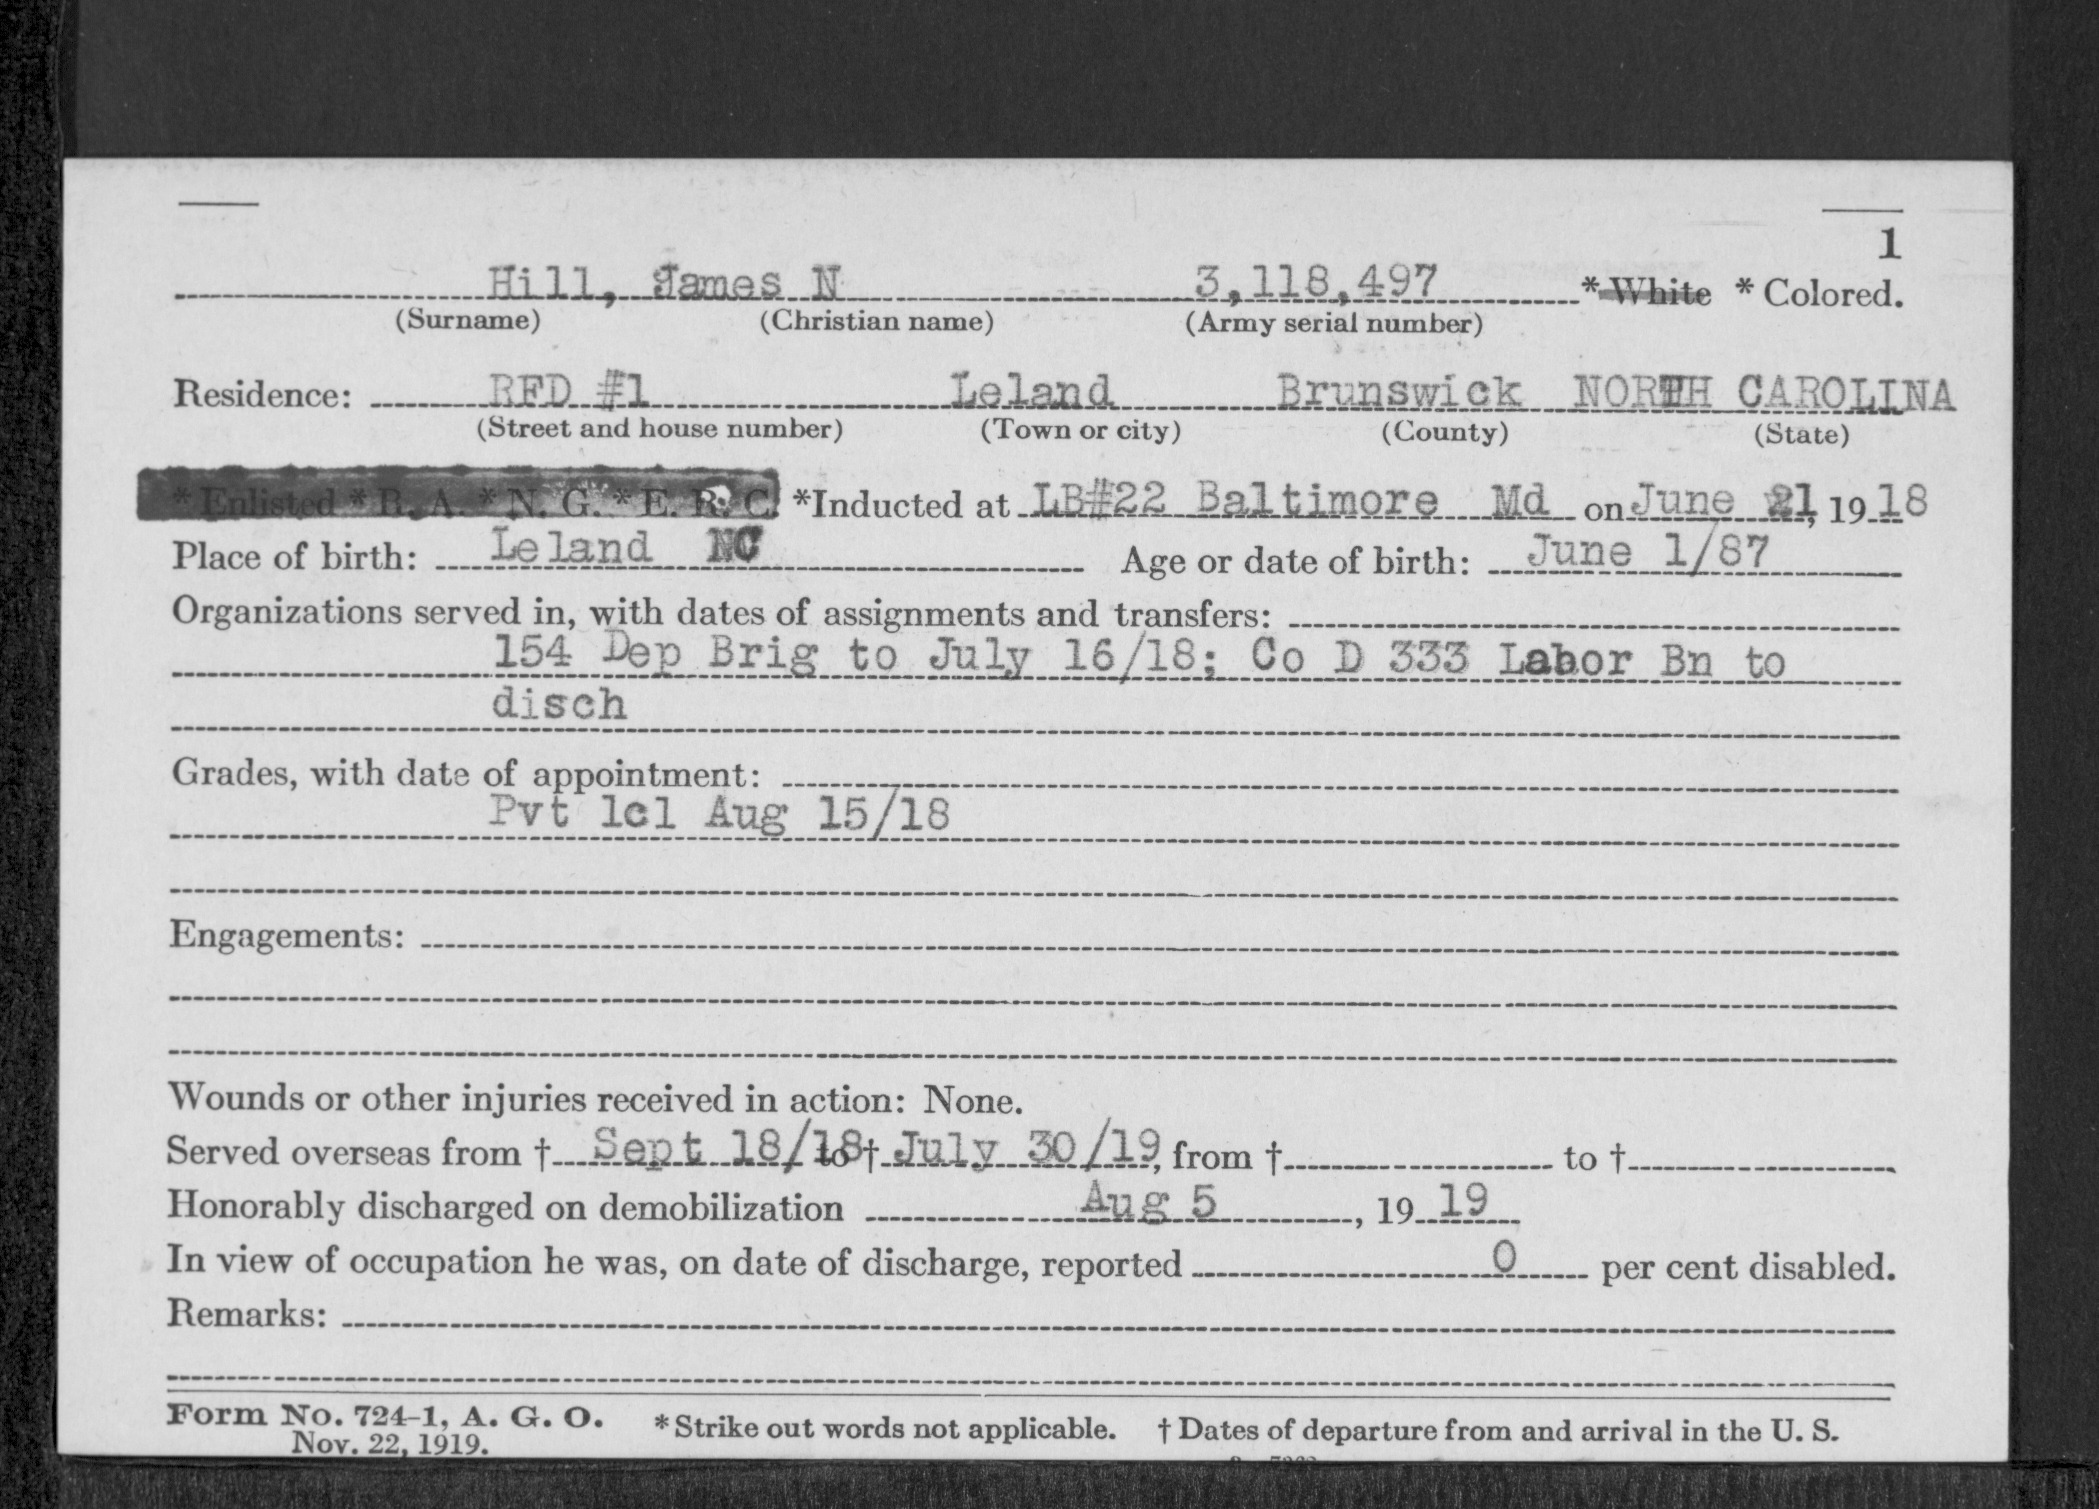 1
Hill, James N 3,118,497 * White * Colored.
(Surname) (Christian name) (Army serial number)
Residence: RFD #1 Leland Brunswick NORTH CAROLINA
(Street and house number) (Town or city) (County) (State)
* Enlisted * R. A. * N. G. * E. R. C. *Inducted at LB#22 Baltimore Md on June 21, 19 18
Place of birth: Leland NC Age or date of birth: June 1/87
Organizations served in, with dates of assignments and transfers:
154 Dep Brig to July 16/18; Co D 333 Labor Bn to
disch
Grades, with date of appointment:
Pvt 1cl Aug 15/18
Engagements:
Wounds or other injuries received in action: None.
Served overseas from † Sept 18/18 to † July 30/19, from † to †
Honorably discharged on demobilization Aug 5, 19 19
In view of occupation he was, on date of discharge, reported 0 per cent disabled.
Remarks:
Form No. 724-1, A. G. O. * Strike out words not applicable. † Dates of departure from and arrival in the U. S.
Nov. 22, 1919.